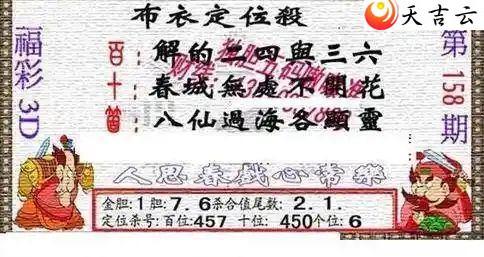 天吉云
布衣定位殺
福彩3D
第158期
百：解的二四與三六
十：春城無處不開花
箇：八仙過海各顯靈
人思春戲心常樂
金胆:1胆:7.6杀合值尾数:2.1.
定位杀号:百位:457 十位:450个位:6